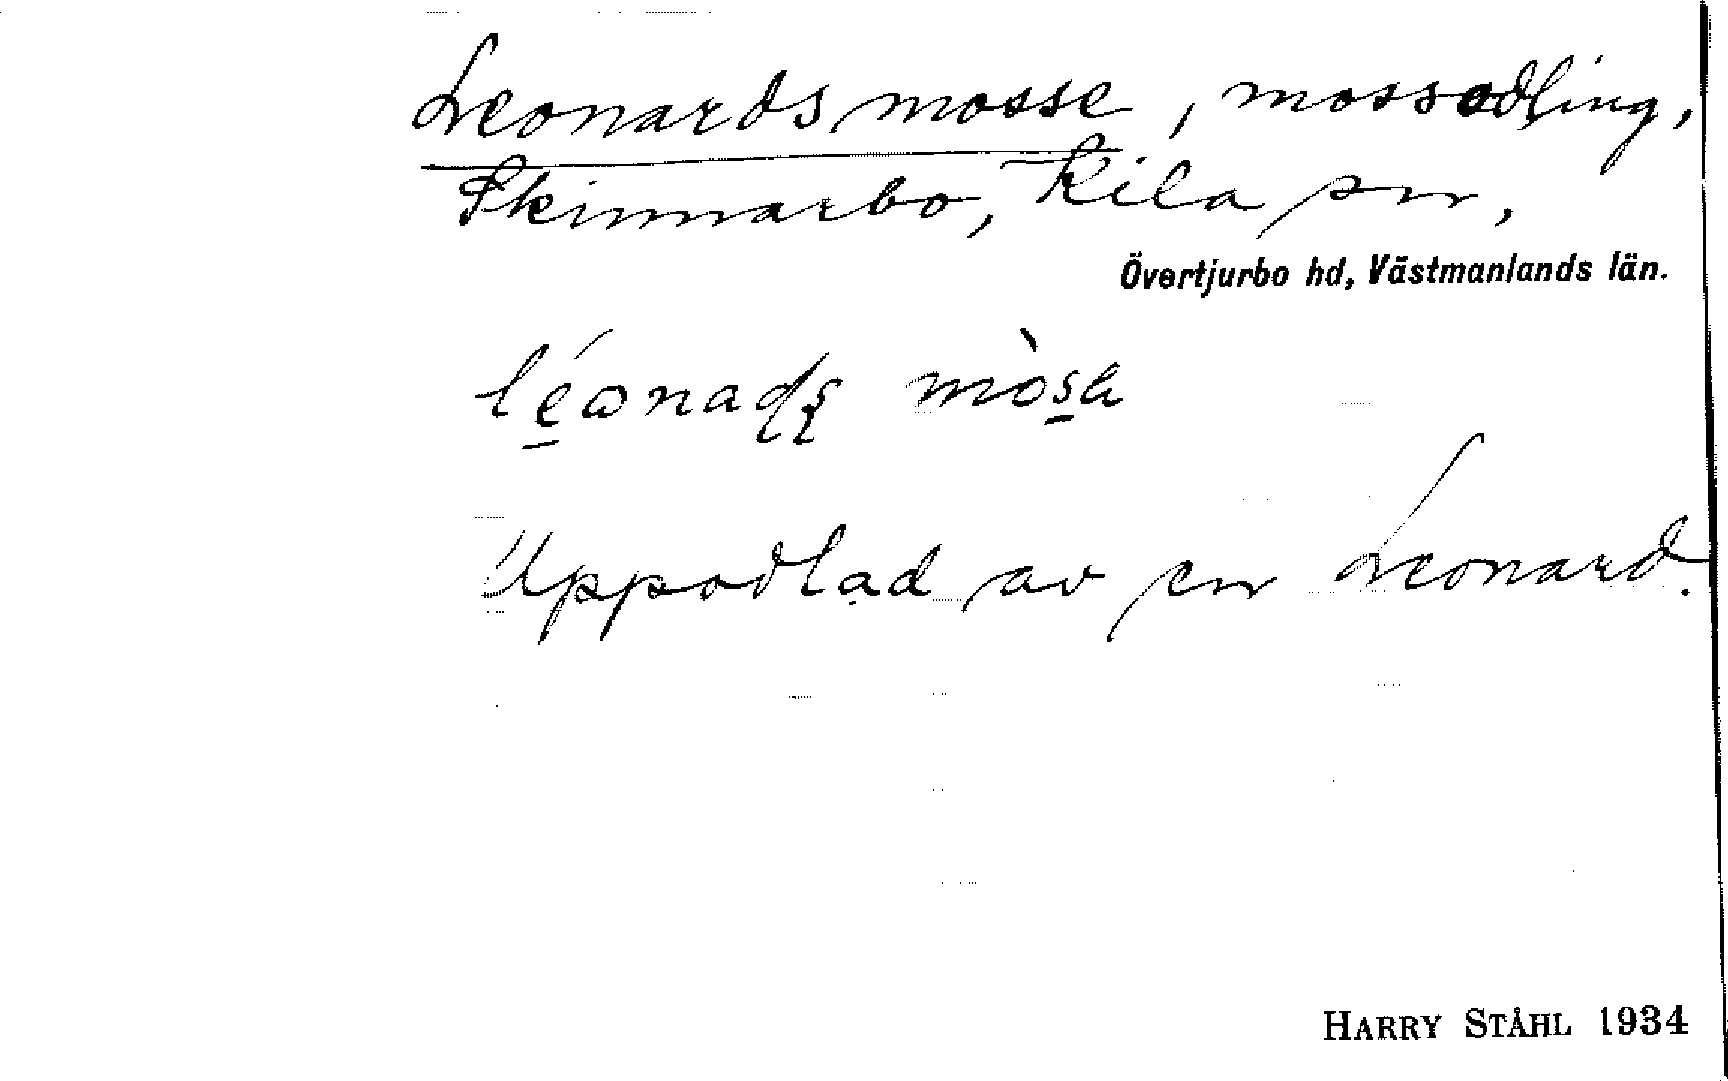 Leonardsmosse, mossodling,
Skinnarbo, Kila sn,
Övertjurbo hd, Västmanlands län.
Uppodlad av en Leonard.
HARRY STÅHL 1934